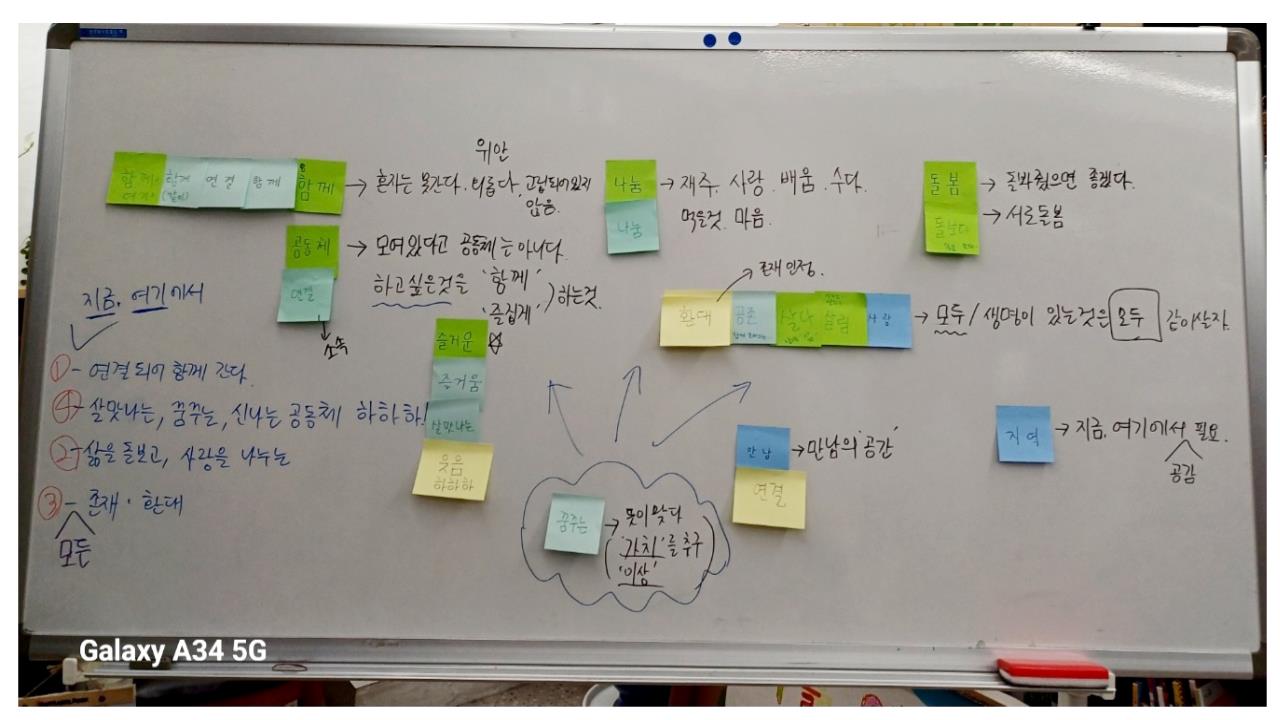 위안
함께 연결 함께 함께 → 혼자는 못간다. 외롭다. 고립되어있지
않음.
공동체 → 모여있다고 공동체는 아니다.
연결
하고싶은것을 '함께'
'즐겁게' 하는것.
소속
즐거운
즐거움
살맛나는
웃음
하하하
나눔 → 재주. 사랑. 배움. 수다.
나눔
먹을것. 마음.
돌봄 → 돌봐줬으면 좋겠다.
돌보다 → 서로돌봄
존재 인정.
환대 공존 살림 사랑 → 모두/생명이 있는것은 모두 같이살자.
지금, 여기에서
① - 연결되어 함께 간다.
④ - 살맛나는, 꿈꾸는, 신나는 공동체 하하하!
② - 삶을 돌보고, 사랑을 나누는
③ - 존재·환대
모두
꿈꾸는 → 뜻이 맞다
'가치'를 추구
'이상'
만남 → 만남의 '공간'
연결
지역 → 지금, 여기에서 필요.
공감
Galaxy A34 5G